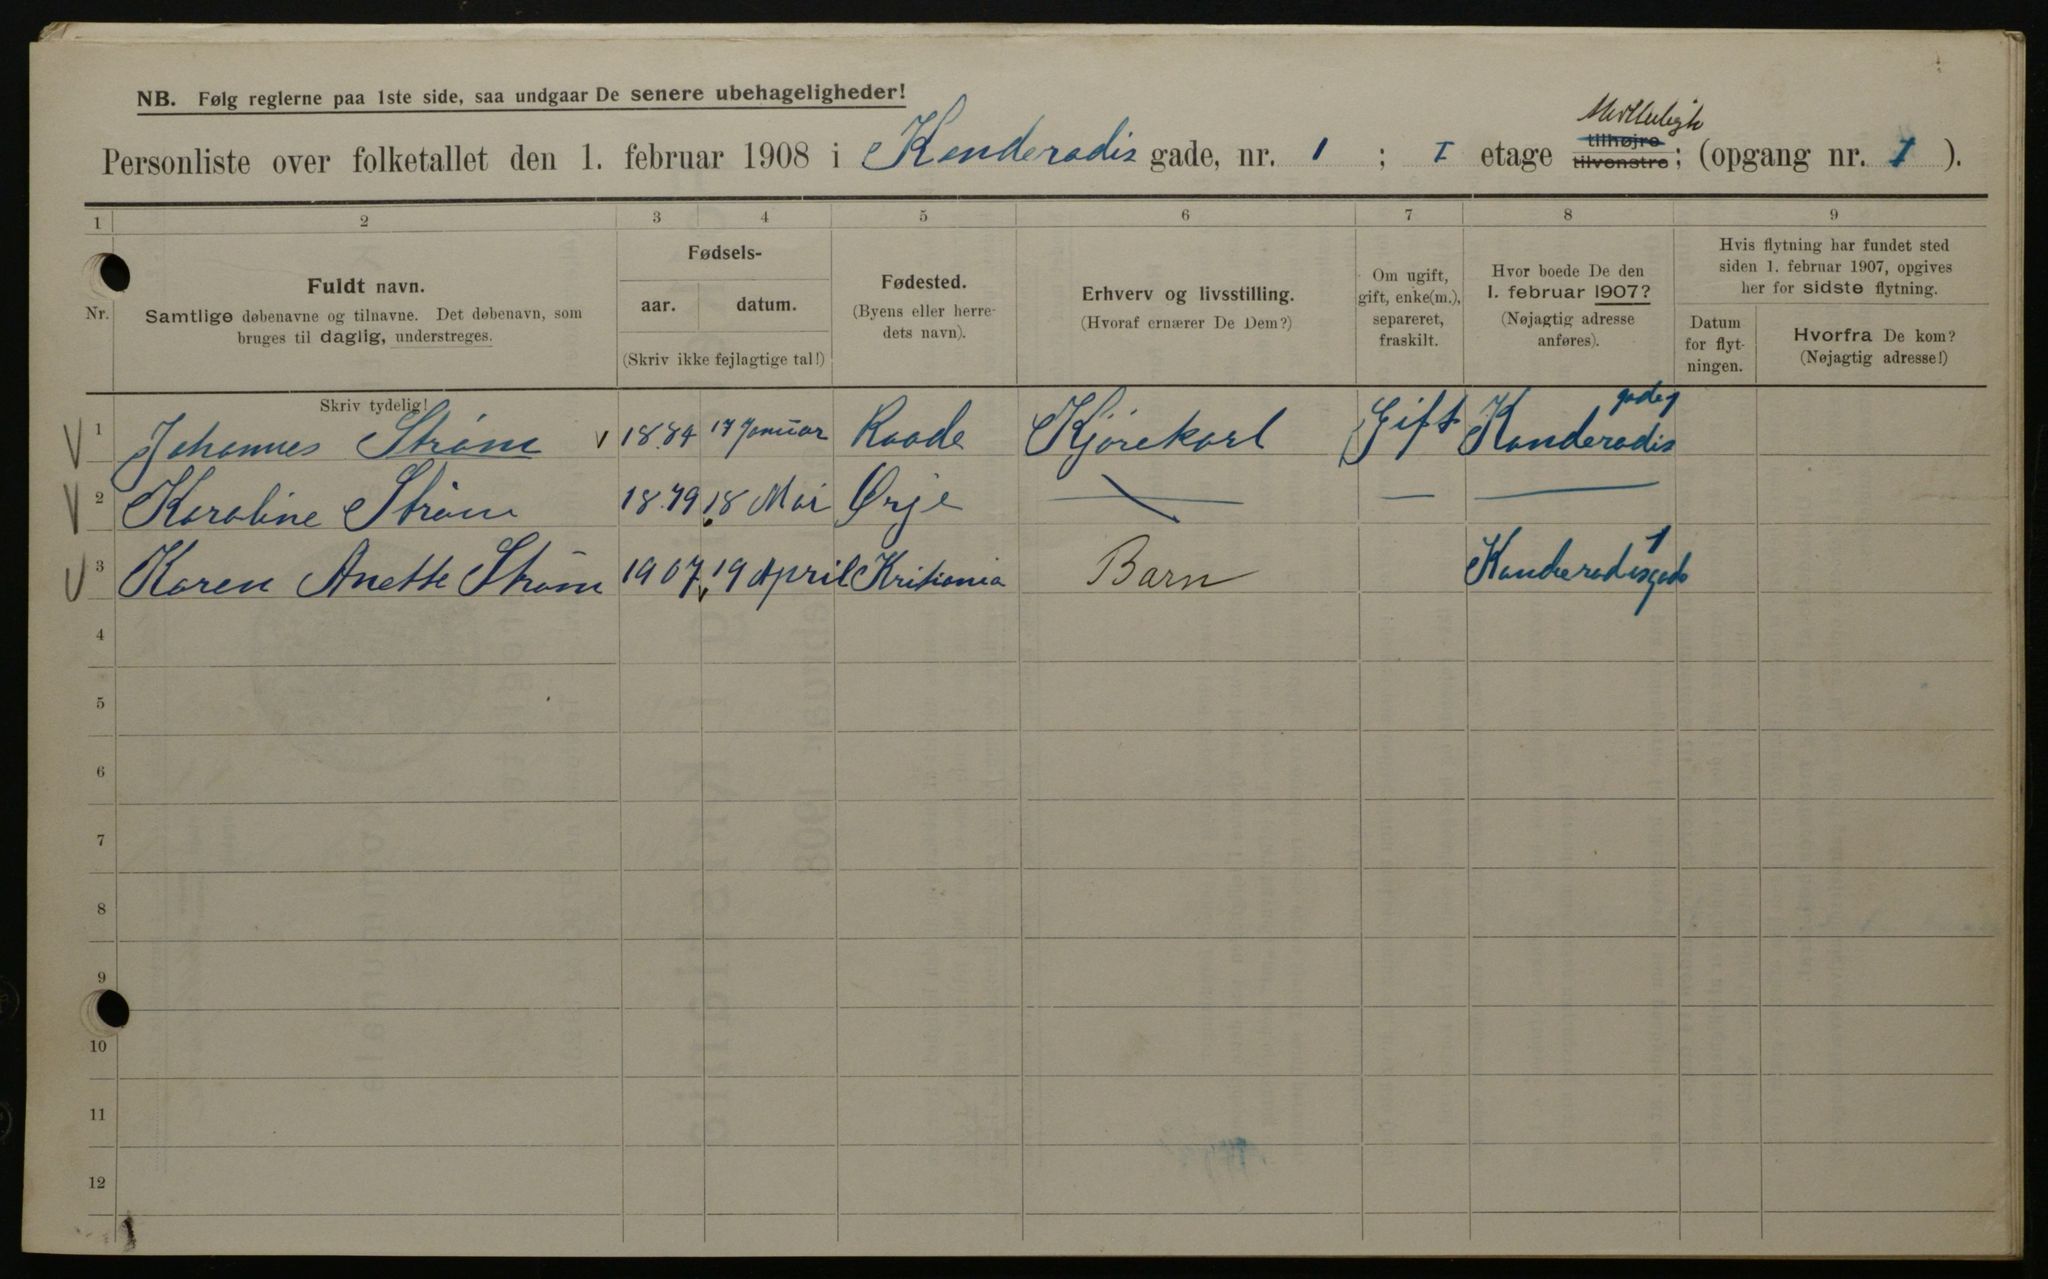 NB. Følg reglerne paa 1ste side, saa undgaar De senere ubehageligheder!
Personliste over folketallet den 1. februar 1908 i Kanderadis gade, nr. 1 ; I etage tilhøjre tilvenstre; (opgang nr. 1 ).
1 2 3 4 5 6 7 8 9
Nr.
Fuldt navn.
Samtlige døbenavne og tilnavne. Det døbenavn, som
bruges til daglig, understreges.
Skriv tydelig!
Fødsels-
aar. datum.
(Skriv ikke fejlagtige tal!)
Fødested.
(Byens eller herre-
dets navn).
Erhverv og livsstilling.
(Hvoraf ernærer De Dem?)
Om ugift,
gift, enke(m.),
separeret,
fraskilt.
Hvor boede De den
1. februar 1907?
(Nøjagtig adresse
anføres).
Hvis flytning har fundet sted
siden 1. februar 1907, opgives
her for sidste flytning.
Datum
for flyt-
ningen.
Hvorfra De kom?
(Nøjagtig adresse!)
1 Johannes Strøm v 1884 17 Januar Raade Kjørekarl Gift Kanderadis gade 1
2 Karoline Strøm 1879 18 Mai Ørje — — —
3 Karen Anette Strøm 1907 19 April Kritiania Barn Kanderadisgade 1
4
5
6
7
8
9
10
11
12